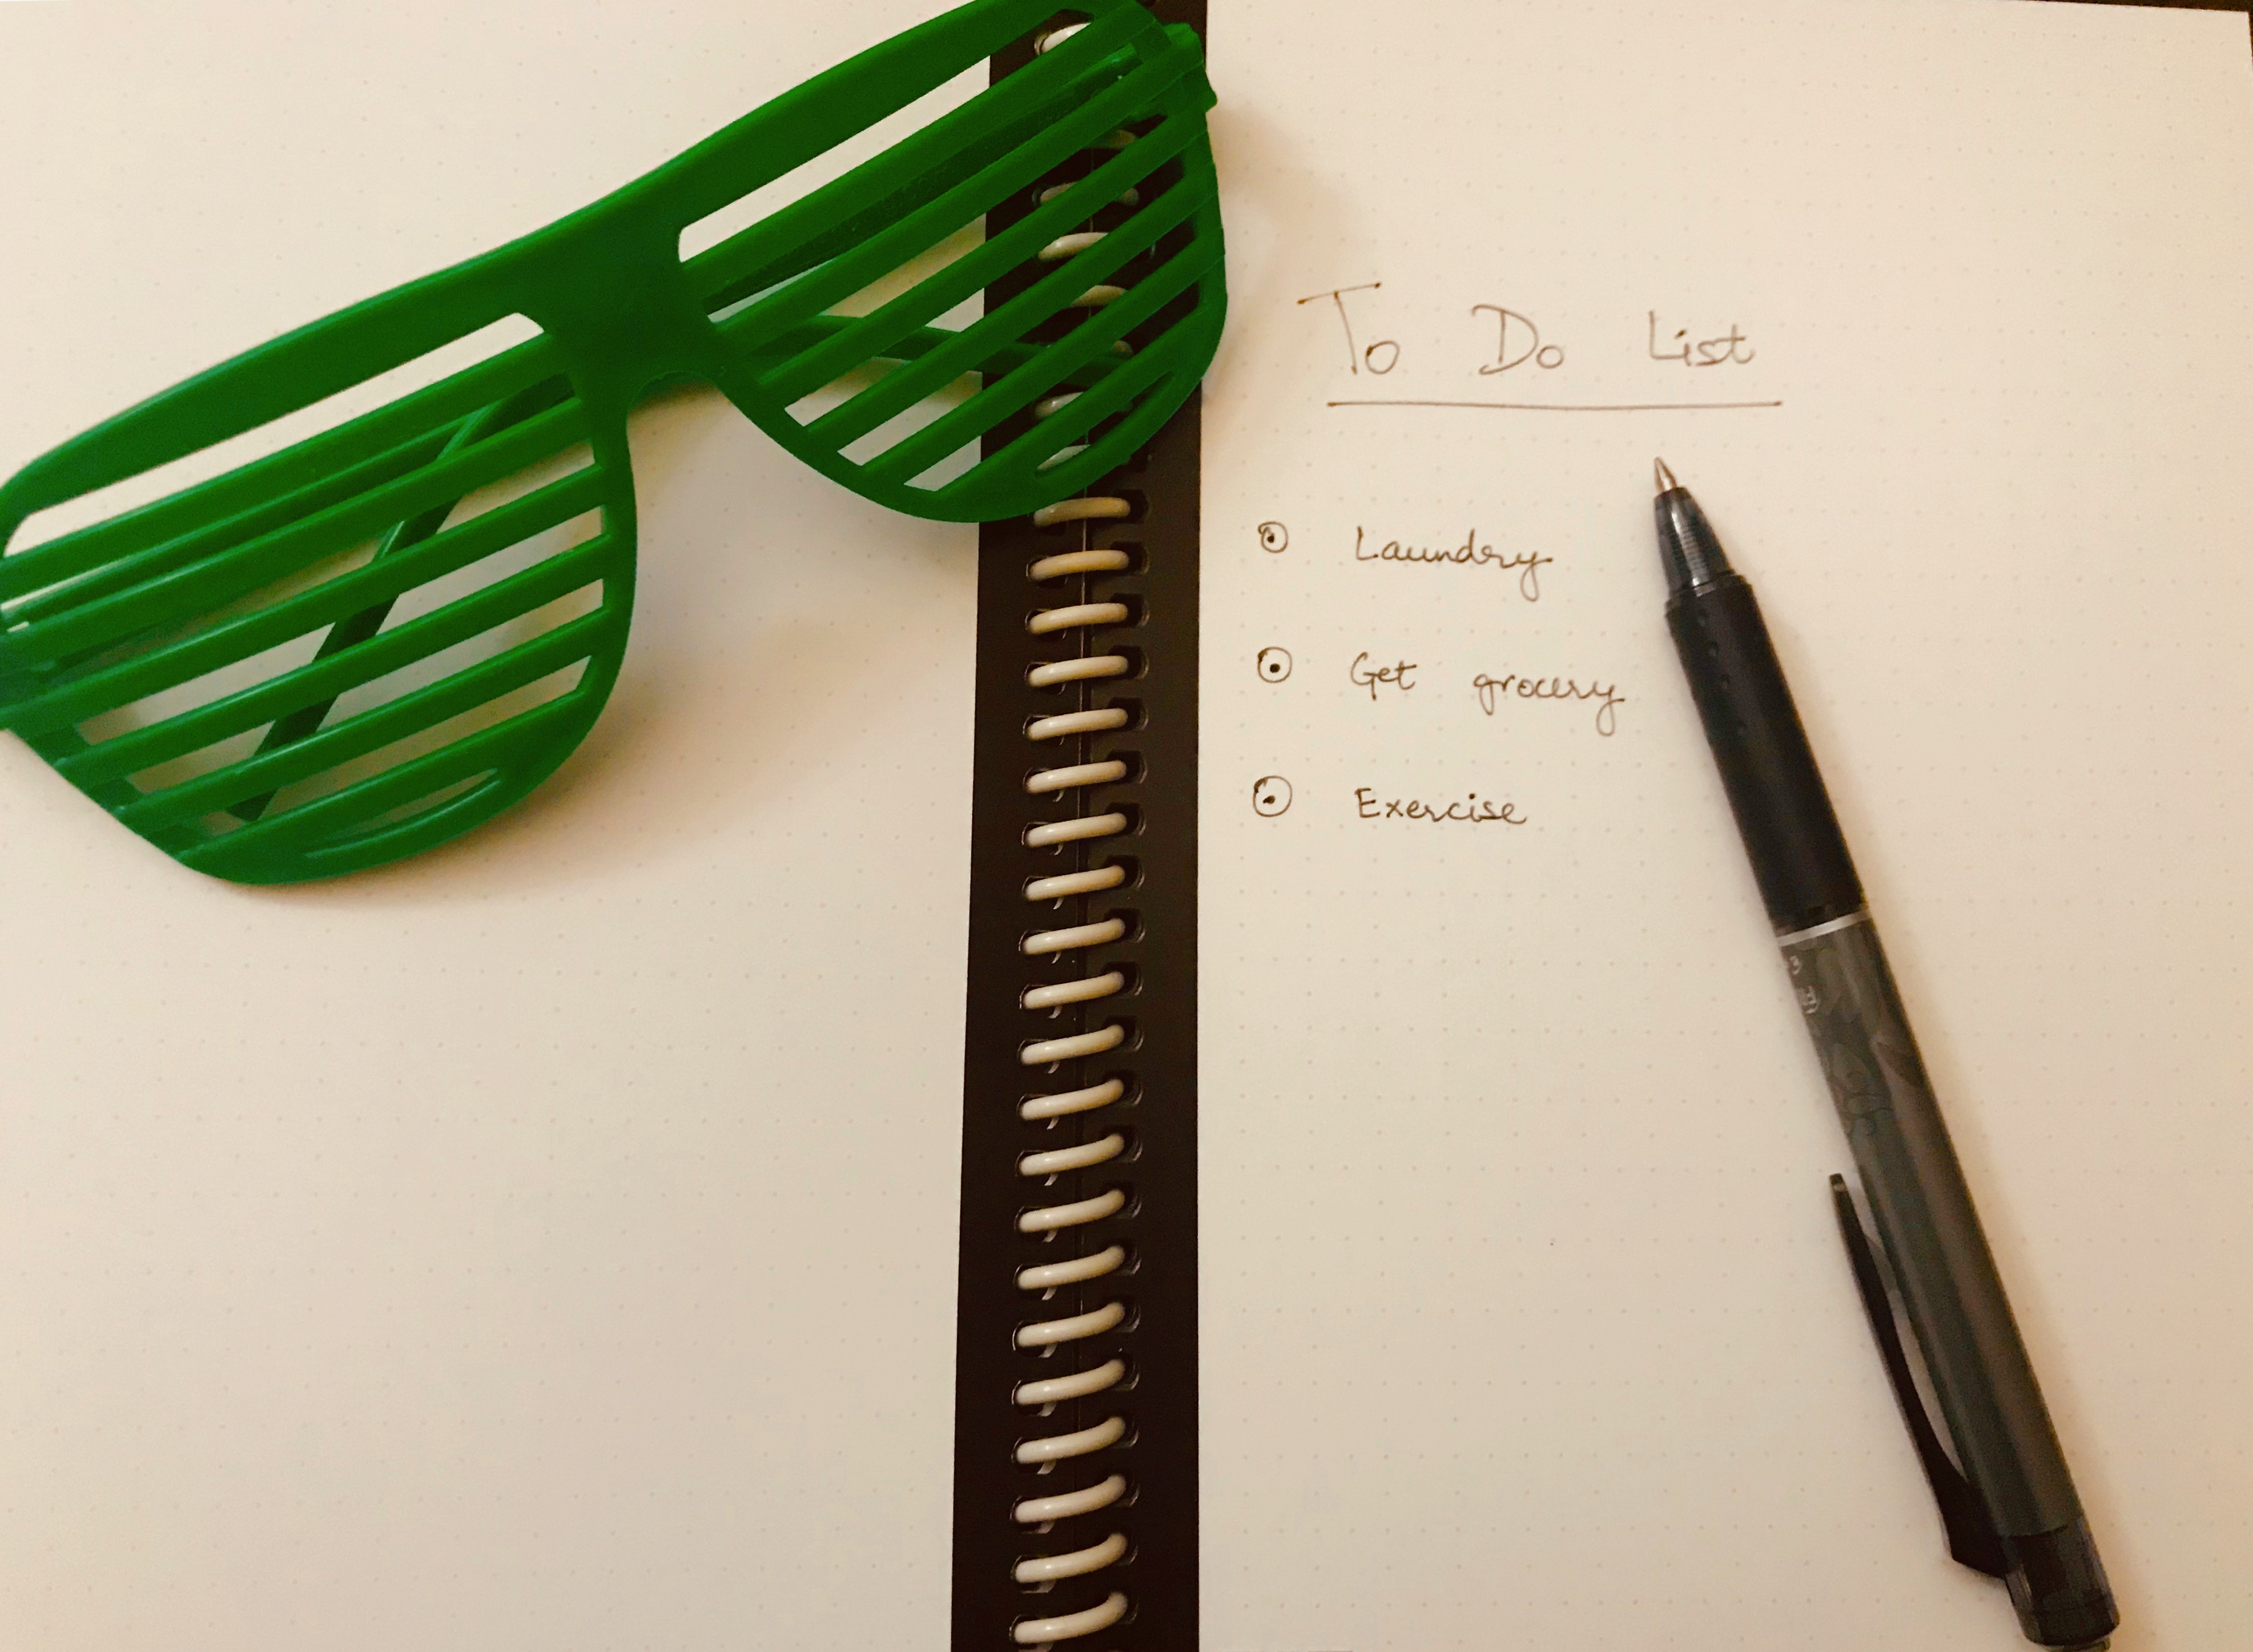 To Do List
Laundry
Get grocery
Exercise